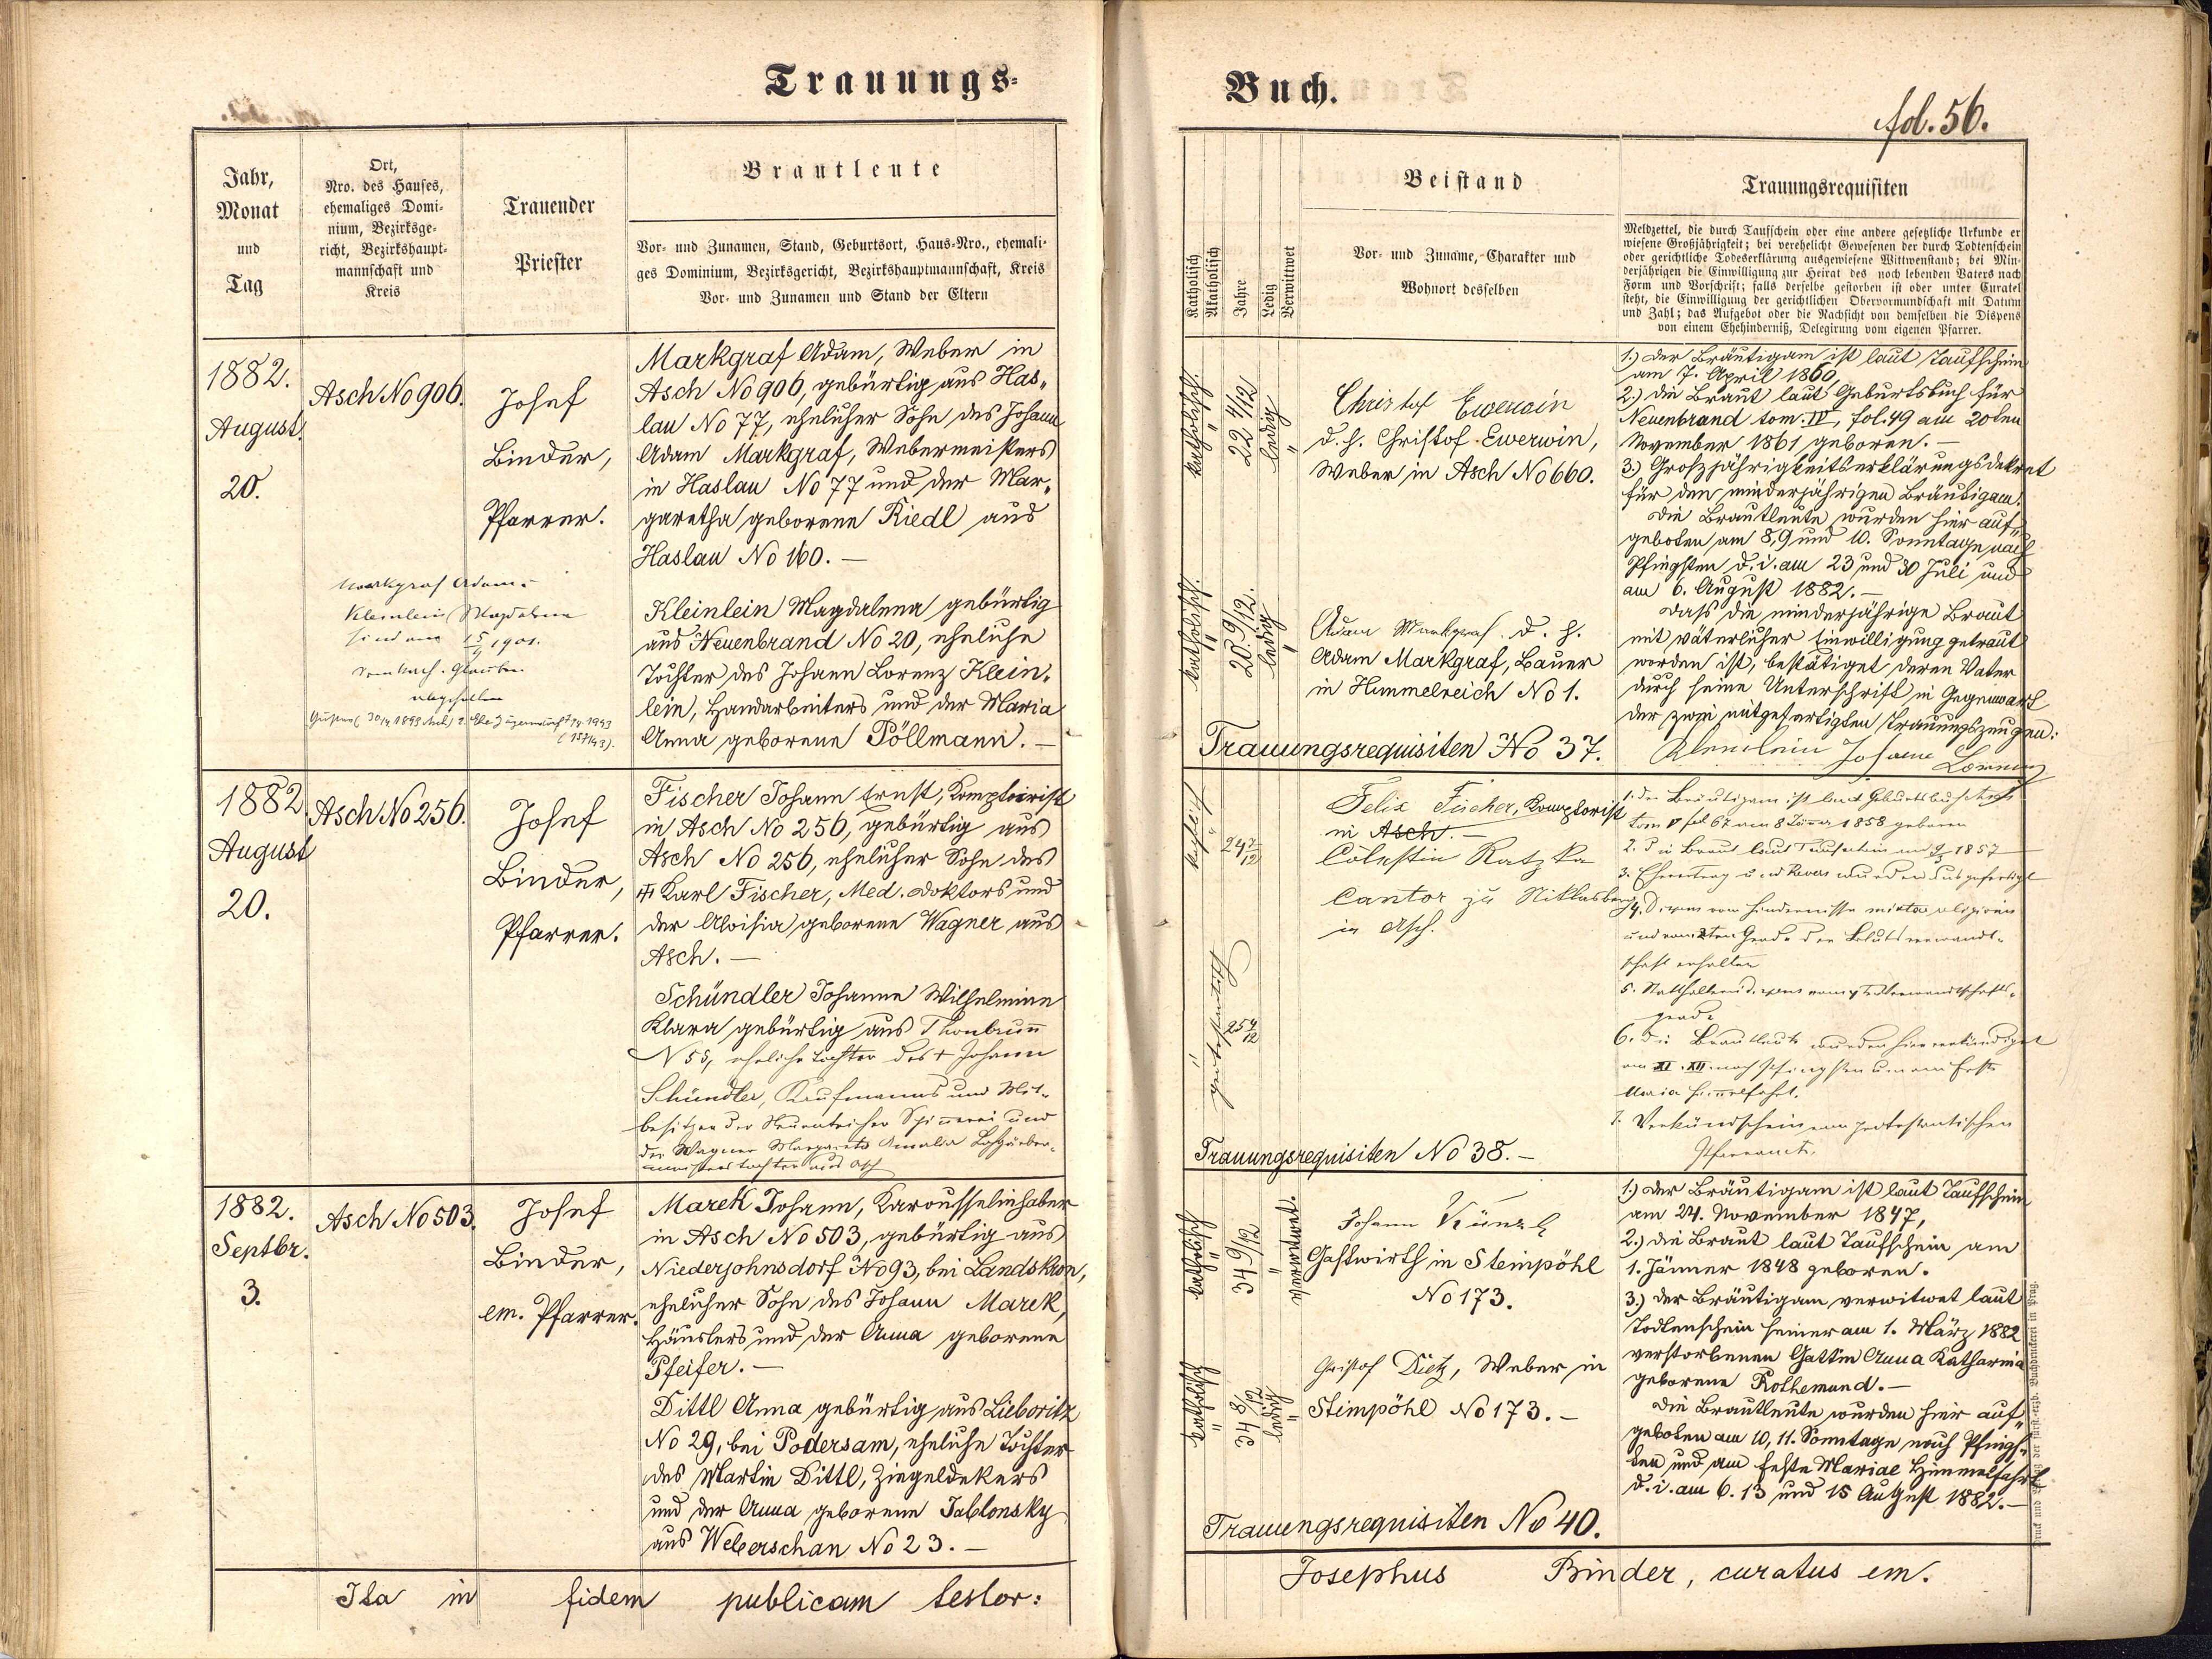 Trauungs-
Jahr,
Monat
und
Tag
Ort,
Nro. des Hauses,
ehemaliges Domi-
nium, Bezirksge-
richt, Bezirkshaupt-
mannschaft und
Kreis
Trauender
Priester
Brautleute
Vor- und Zunamen, Stand, Geburtsort, Haus-Nro., ehemali-
ges Dominium, Bezirksgericht, Bezirkshauptmannschaft, Kreis
Vor- und Zunamen und Stand der Eltern
1882.
August.
20.
Asch No 906.
Josef
Binder,
Pfarrer.
Markgraf Adam, Weber in
Asch No 906, gebürtig aus Has„
lau No 77, ehelicher Sohn des Johann
Adam Markgraf, Webermeisters
in Haslau No 77 und der Mar„
garetha geborene Riedl aus
Haslau No 160. —
Kleinlein Magdalena gebürtig
aus Neuenbrand No 20, eheliche
Tochter des Johann Lorenz Klein„
lein, Handarbeiters und der Maria
Anna geborene Pöllmann. —
Markgraf Adam
Kleinlein Magdalena
sind am 1901.
vom kath. Glauben
abgefallen
1882.
August
20.
Asch No 256.
Josef
Binder,
Pfarrer.
Fischer Johann Ernst, Komptoirist
in Asch No 256, gebürtig aus
Asch No 256, ehelicher Sohn des
Karl Fischer, Med. Doktors und
der Aloisia geborene Wagner aus
Asch. —
Schündler Johanne Wilhelmine
Klara gebürtig aus Thonbrunn
N 55, eheliche Tochter des + Johann
Schündler, Kaufmanns und Mit-
besitzer der Neuenteicher Spinnerei und
der Wagner Margareta Amalia Lohgärber-
meisters Tochter aus Asch
1882.
Septbr.
3.
Asch No 503.
Josef
Binder,
em. Pfarrer.
Marek Johann, Karousselinhaber
in Asch No 503, gebürtig aus
Niederjohnsdorf No 93, bei Landskron,
ehelicher Sohn des Johann Marek,
Häuslers und der Anna geborene
Pfeifer. —
Dittl Anna gebürtig aus Lieboritz
No 29, bei Podersam, eheliche Tochter
des Martin Dittl, Ziegeldekers
und der Anna geborene Jablonsky
aus Weberschan No 23. —
Ita in fidem publicam testor:
Buch.
fol. 56.
Katholisch
Akatholisch
Jahre
Ledig
Verwittwet
Beistand
Vor- und Zuname, Charakter und
Wohnort desselben
Trauungsrequisiten
Meldzettel, die durch Taufschein oder eine andere gesetzliche Urkunde er
wiesene Großjährigkeit; bei verehelicht Gewesenen der durch Todtenschein
oder gerichtliche Todeserklärung ausgewiesene Wittwenstand; bei Min-
derjährigen die Einwilligung zur Heirat des noch lebenden Vaters nach
Form und Vorschrift; falls derselbe gestorben ist oder unter Curatel
steht, die Einwilligung der gerichtlichen Obervormundschaft mit Datum
und Zahl; das Aufgebot oder die Nachsicht von demselben die Dispens
von einem Ehehinderniß, Delegirung vom eigenen Pfarrer.
katholisch.
22 4/12
ledig
Christof Ewerwin
d. h. Christof Ewerwin,
Weber in Asch No 660.
katholisch.
20 9/12.
ledig
Adam Markgraf. d. h.
Adam Markgraf, Bauer
in Himmelreich No 1.
1.) Der Bräutigam ist laut Taufschein
am 7. April 1860,
2.) die Braut laut Geburtsbuch für
Neuenbrand tom. IV, fol. 49 am 20ten
November 1861 geboren. —
3.) Großjährigkeitserklärungsdekret
für den minderjährigen Bräutigam.
Die Brautleute wurden hier auf„
geboten am 8, 9 und 10. Sonntage nach
Pfingsten d. i. am 23 und 30 Juli und
am 6. August 1882. —
Daß die minderjährige Braut
mit väterlicher Einwilligung getraut
worden ist, bestätiget deren Vater
durch seine Unterschrift in Gegenwart
der zwei mitgefertigten Trauungszeugen:
Johann Lorenz
Trauungsrequisiten No 37.
24 7/12
Felix Fischer, Komptorist
in Asch. —
Cölestin Ratzka
Cantor zu Niklasberg
in Asch.
protestantisch
25 4/12
1. Der Bräutigam ist laut Geburtsbuch Asch
tom V fol 67 am 8 Jänner 1858 geboren
2. Die Braut laut Taufschein am 1857
3. Ehevertrag und Revers wurden ausgefertigt
4. Dispens vom Hindernisse mixtae religionis
und vom 2ten Grade der Blutsverwandt-
schaft erhalten
5. Statthaltereidispens vom Verwandtschafts-
grade
6. Die Brautleute wurden hier verkündiget
am XI. XII. nach Pfingsten und am Feste
Maria Himmelfahrt.
7. Verkündschein vom protestantischen
Pfarramte.
Trauungsrequisiten No 38. —
katholisch
34 9/12
verwitwet.
Johann Künzl
Gastwirth in Steinpöhl
No 173.
katholisch
34 8/12
ledig
Christof Dietz, Weber in
Steinpöhl No 173. —
1.) Der Bräutigam ist laut Taufschein
am 24. November 1847,
2.) die Braut laut Taufschein am
1. Jänner 1848 geboren.
3.) Der Bräutigam verwitwet laut
Todtenschein seiner am 1. März 1882
verstorbenen Gattin Anna Katharina
geborene Rothemund. —
Die Brautleute wurden hier auf„
geboten am 10, 11. Sonntage nach Pfings„
ten und am Feste Mariae Himmelfahrt
d. i. am 6. 13 und 15 August 1882. —
Trauungsrequisiten No 40.
Josephus Binder, curatus em.